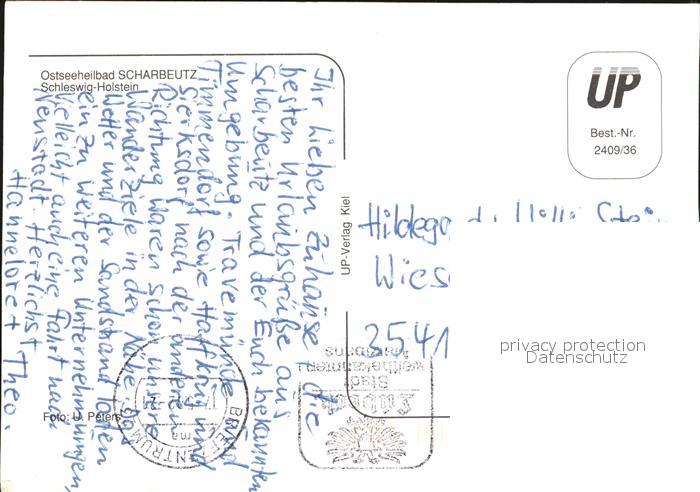 Ostseeheilbad SCHARBEUTZ
Schleswig-Holstein
Ihr Lieben Zuhause! Die
besten Urlaubsgrüße aus
Scharbeutz und der Euch bekannten
Umgebung. Travemünde
Timmendorf sowie Haffkrug und
Sierksdorf nach der anderen
Richtung waren schon unsere
Wanderziele in der Nähe. Das
Wetter und der Sandstrand laden
ein zu weiteren Unternehmungen,
vielleicht auch eine Fahrt nach
Neustadt. Herzlichst
Hannelore + Theo.
Foto: U. Peters
UP-Verlag Kiel
UP
Best.-Nr.
2409/36
Hildeg
Wies
3541
privacy protection
Datenschutz
BRIEFZENTRUM
ma
Lübeck
Stadt
weltbekannten
Marzipans